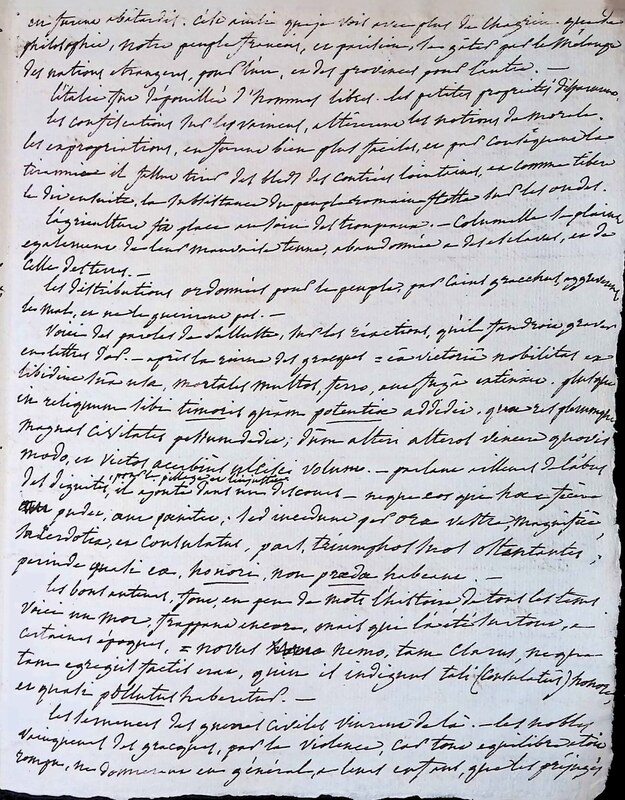 en furent abâtardis. C'est ainsi que je vois avec plus de chagrin que de
philosophie, notre peuple français, et parisien, se gâter par le mélange
des nations étrangeres, pour l'un, et des provinces pour l'autre. —
l'italie fut dépouillée d'hommes libres. les petites propriétés disparurent.
les confiscations sur les vaincus, altérerent les notions de morale.
les expropriations, en furent bien plus faciles, et par conséquent la
tirannie il fallut tirer des bleds des contrées lointaines, et comme tibere
le dit ensuite, la subsistance du peuple romain flotta sur les ondes.
l'agriculture fit place au soin des troupeaux. — Columelle se plaint
également de leur mauvaise tenue, abandonnée a des esclaves, et de
celle des terres. —
les distributions ordonnées pour le peuple, par Caius gracchus, aggraverent
les maux, et ne le guérirent pas. —
Voici des paroles de salluste, sur les réactions, qu'il faudroit graver
en lettres d'or. — après la ruine des gracques = ea victoria nobilitas ex
libidine sua usa, mortales multos, ferro, aut fuga extinxit. plusque
in reliquum sibi timoris quam potentiæ addidit, quæ res plerumque
magnas civitates pessumdedit; dum alteri alteros vincere quovis
modo, et victos acerbius ulcisci volunt. — parlant ailleurs de l'abus
des dignités, pour le pillage et l'injustice
il ajoute dans un discours — neque eos quæ hæc fecere
pudet, aut pœnitet, sed incedunt per ora vestra magnifici,
sacerdotia, et consulatus, pars, triumphos suos ostentantes,
perinde quasi ea, honori, non prædæ habeant. —
les bons auteurs, font, en peu de mots l'histoire de tous les tems
voici un mot, frappant encore, mais qui l'a été surtout, a
certaines époques, = novus nemo, tam clarus, neque
tam egregiis factis erat, quin is indignus tali (consulatus) honore,
et quasi pollutus haberetur. —
les semences des guerres civiles vinrent de là. — les nobles
vainqueurs des gracques, par la violence, car tout equilibre etoit
rompu, ne donnerent en général, a leurs enfans, que les préjugés